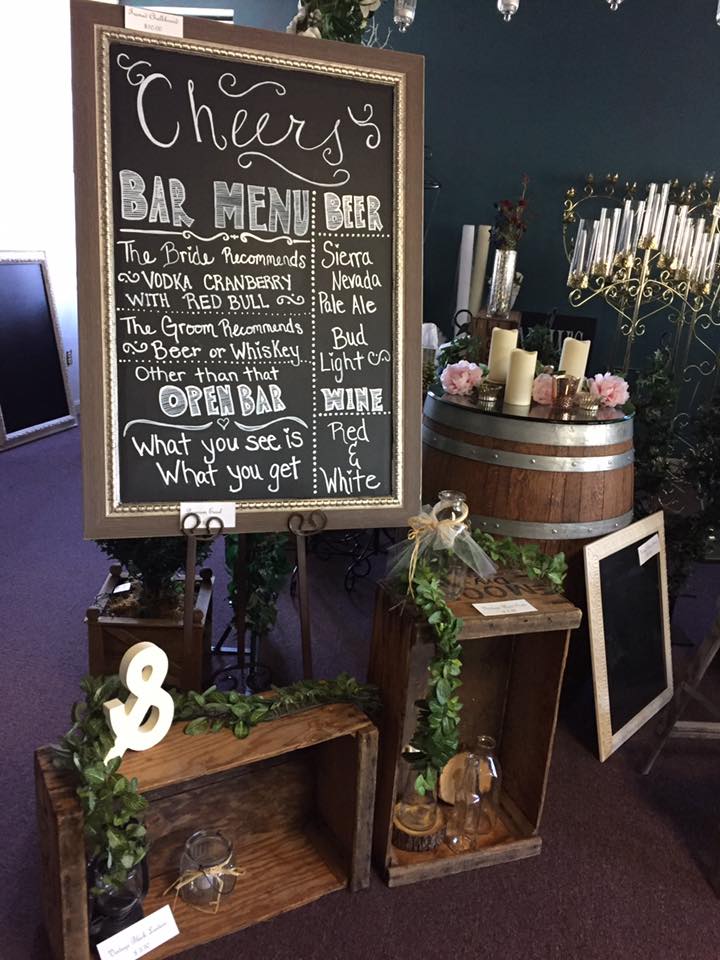 Framed Chalkboard
$10.00
Cheers
BAR MENU
The Bride Recommends
VODKA CRANBERRY
WITH RED BULL
The Groom Recommends
Beer or Whiskey
Other than that
OPEN BAR
What you see is
What you get
BEER
Sierra
Nevada
Pale Ale
Bud
Light
WINE
Red
&
White
&
Vintage Black Lantern